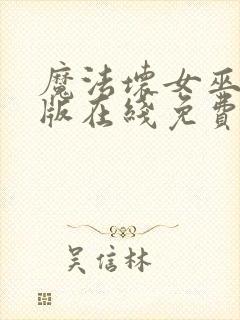 魔法壞女巫
版在綫免費
吴信林